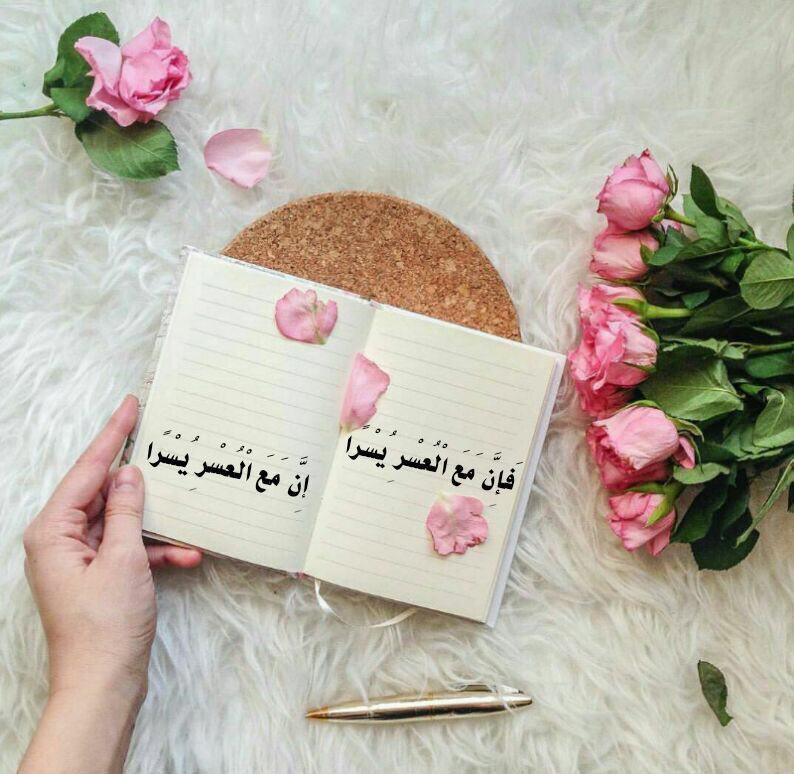 فَإِنَّ مَعَ الْعُسْرِ يُسْرًا
إِنَّ مَعَ الْعُسْرِ يُسْرًا